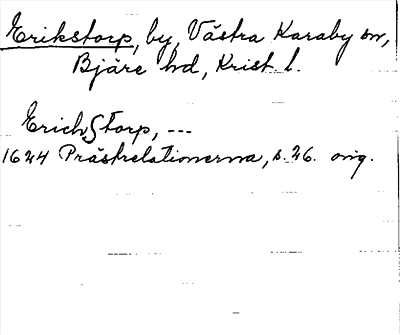 Erikstorp, by, Västra Karaby sn,
Bjäre hd, Krist. l.
ErichsTorp, ---
1624 Prästrelationerna, s. 26. orig.